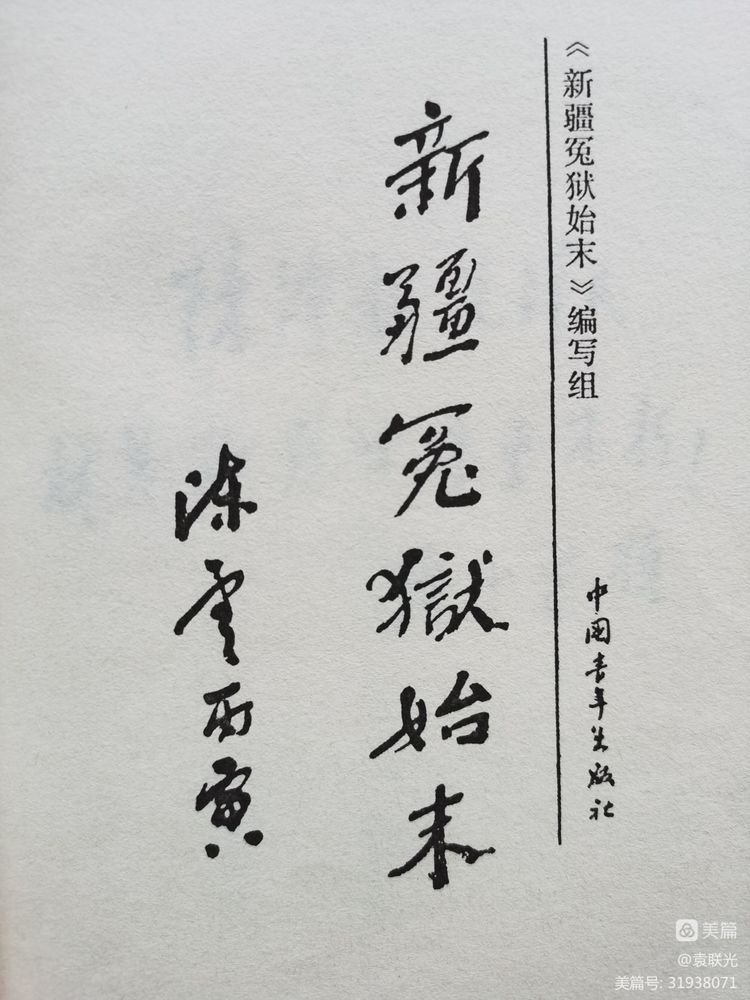 《新疆冤狱始末》编写组
中国青年出版社
新疆冤獄始末
陈雲丙寅
美篇
@袁联光
美篇号: 31938071